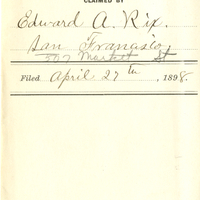 CLAIMED BY
Edward A. Rix.
San Francisco
Market St
Filed April 27th, 1898.